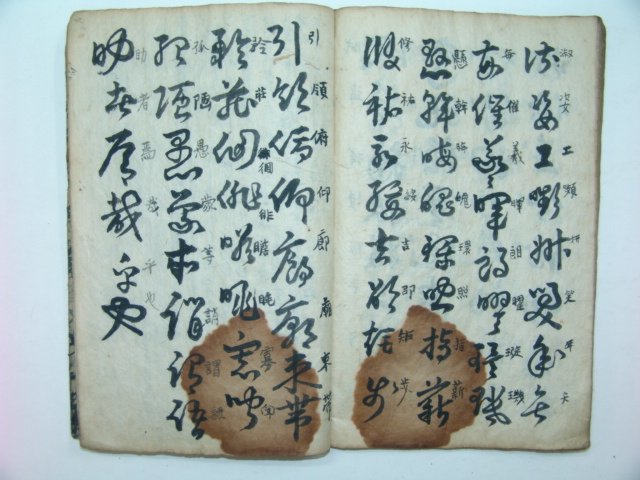 淑姿工嚬姸笑年矢
每催羲暉朗曜璇璣
懸斡晦魄環照指薪
修祐永綏吉邵矩步
引領俯仰廊廟束帶
矜莊徊徘瞻眺寡聞
孤陋愚蒙等誚謂語
助者焉哉乎也